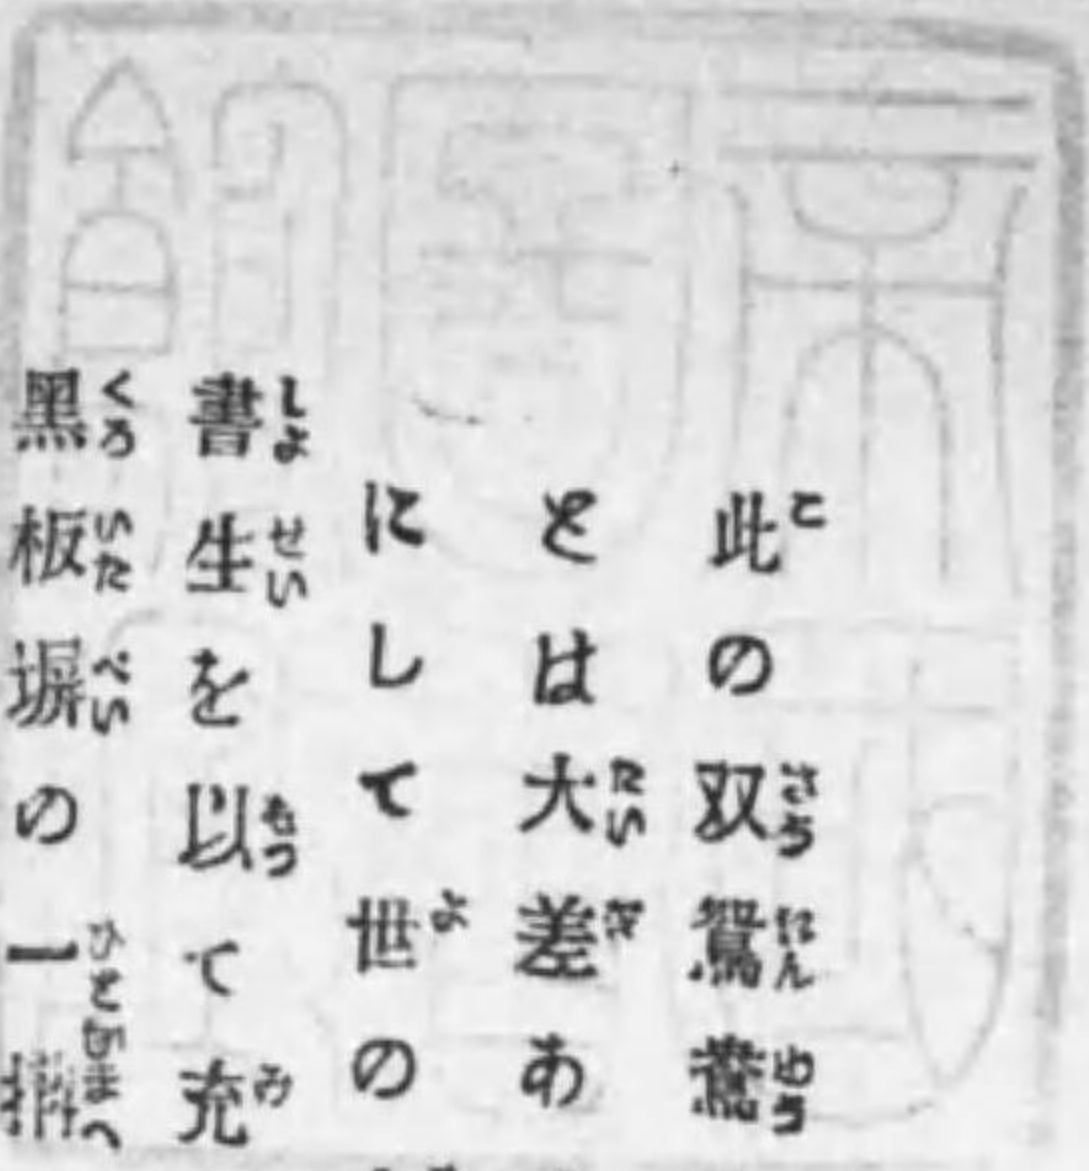 此の双鴛鴦
とは大差あ
にして世の
書生を以て充
黑板塀の一搆